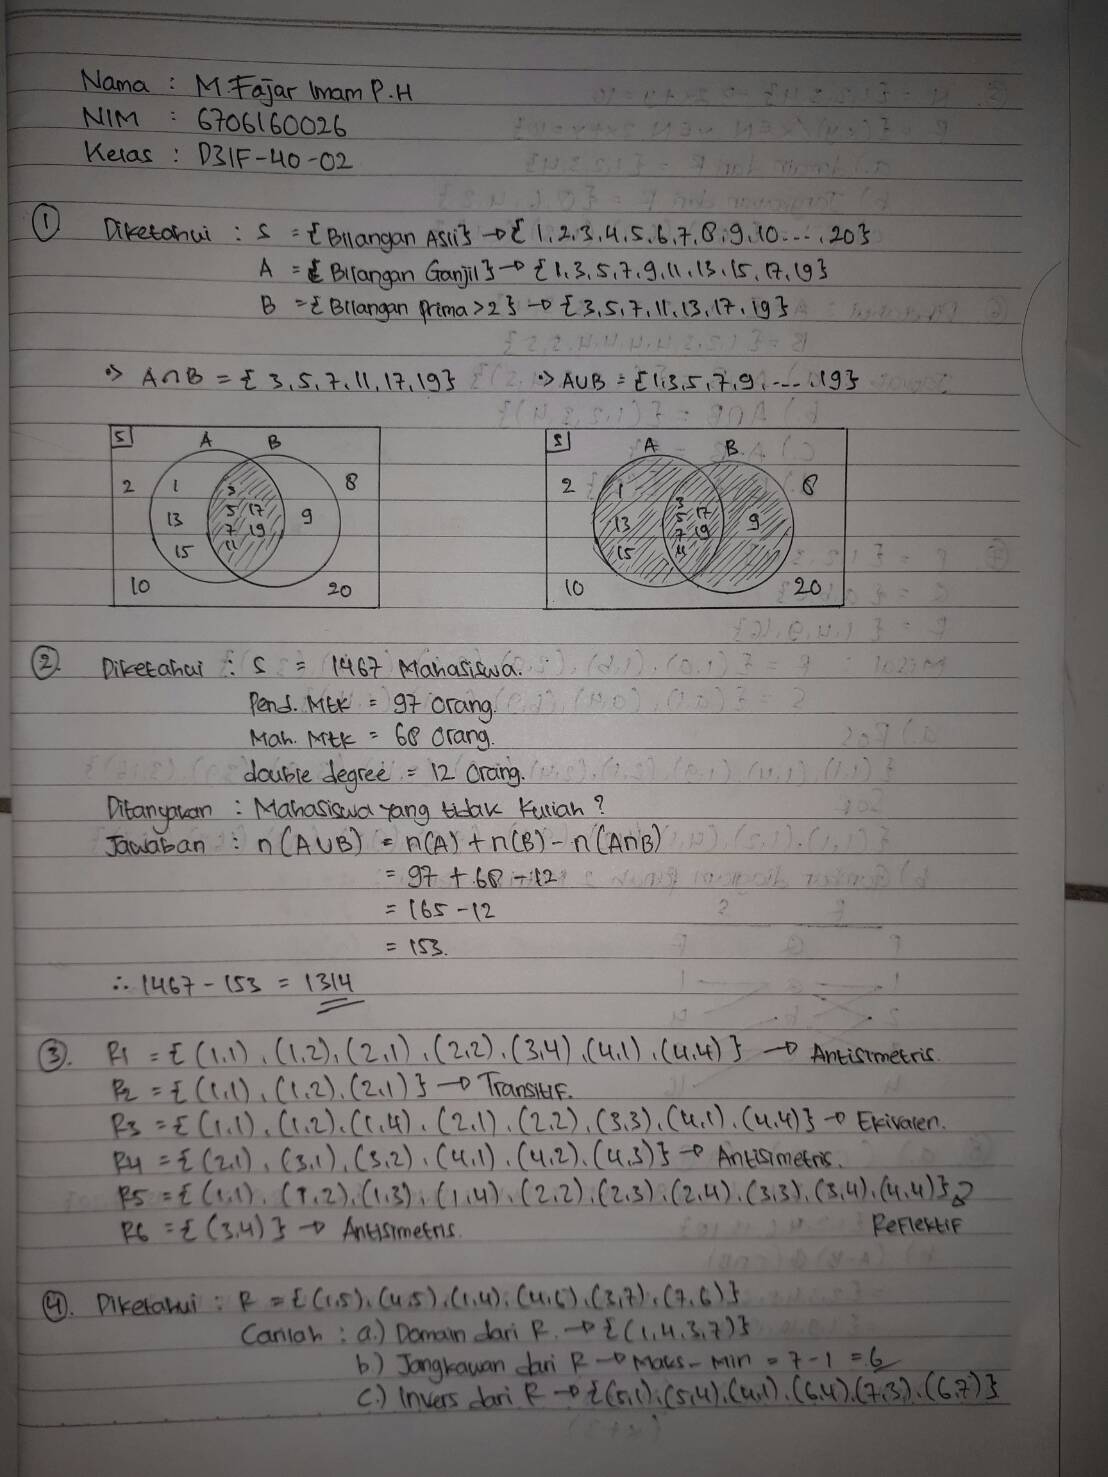 Nama : M. Fajar Imam P.H
NIM : 6706160026
Kelas : D3IF-40-02
① Diketahui : S = {Bilangan Asli} → {1,2,3,4,5,6,7,8,9,10....,20}
A = {Bilangan Ganjil} → {1,3,5,7,9,11,13,15,17,19}
B = {Bilangan prima > 2} → {3,5,7,11,13,17,19}
=> A∩B = {3,5,7,11,17,19} => A∪B = {1,3,5,7,9,....,19}
S A B S A B
2 1 3 8 2 1 3 8
13 5 17 9 13 5 17 9
7 19 7 19
15 11 15 11
10 20 10 20
② Diketahui : S = 1467 Mahasiswa.
Pend. Mtk = 97 orang.
Mah. Mtk = 68 orang.
double degree = 12 orang.
Ditanyakan : Mahasiswa yang tidak kuliah ?
Jawaban : n(A∪B) = n(A) + n(B) - n(A∩B)
= 97 + 68 - 12
= 165 - 12
= 153.
∴ 1467 - 153 = 1314
③. R1 = {(1,1), (1,2), (2,1), (2,2), (3,4), (4,1), (4,4)} → Antisimetris.
R2 = {(1,1), (1,2), (2,1)} → Transitif.
R3 = {(1,1), (1,2), (1,4), (2,1), (2,2), (3,3), (4,1), (4,4)} → Ekivalen.
R4 = {(2,1), (3,1), (3,2), (4,1), (4,2), (4,3)} → Antisimetris.
R5 = {(1,1), (1,2), (1,3), (1,4), (2,2), (2,3), (2,4), (3,3), (3,4), (4,4)}
R6 = {(3,4)} → Antisimetris. Reflektif
④. Diketahui : R = {(1,5), (4,5), (1,4), (4,6), (3,7), (7,6)}
Carilah : a.) Domain dari R. → {(1,4,3,7)}
b.) Jangkauan dari R → Maks - Min = 7-1 = 6
c.) Invers dari R → {(5,1), (5,4), (4,1), (6,4), (7,3), (6,7)}